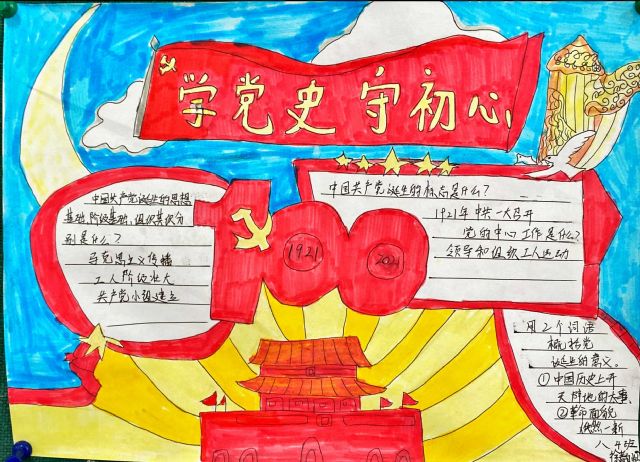 学党史 守初心
中国共产党诞生的思想
基础,阶级基础,组织基础分
别是什么?
马克思主义传播
工人阶级壮大
共产党小组建立
100
1921
2021
中国共产党诞生的标志是什么?
1921年中共一大召开
党的中心工作是什么?
领导和组织工人运动
用2个词语
概括党
诞生的意义。
①中国历史上开
天辟地的大事
②革命面貌
焕然一新
八4班